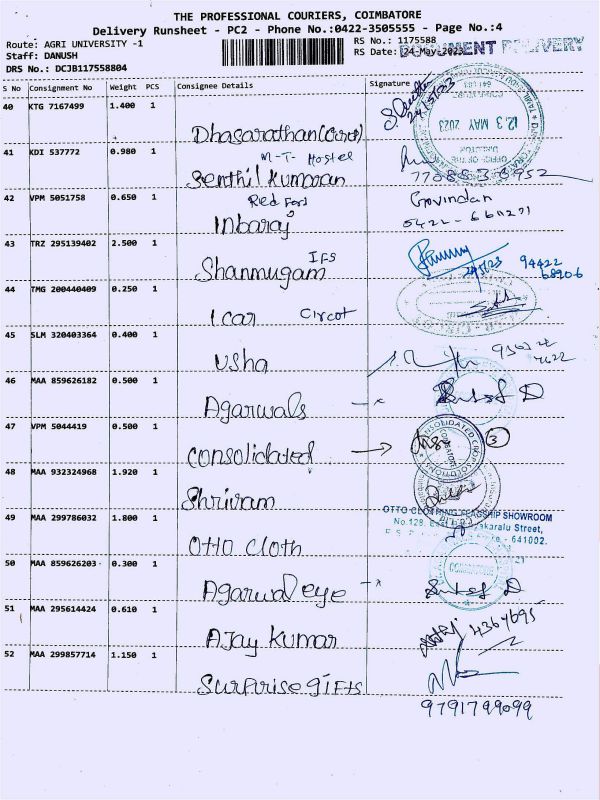 THE PROFESSIONAL COURIERS, COIMBATORE
Delivery Runsheet - PC2 - Phone No.:0422-3505555 - Page No.:4
Route: AGRI UNIVERSITY -1
RS No.: 1175588
DOCUMENT DELIVERY
Staff: DANUSH
RS Date: 24-May-2023
DRS No.: DCJB117558804
S No Consignment No Weight PCS Consignee Details Signature
40 KTG 7167499 1.400 1
24/5/23
12 3 MAY 2023
OFFICE OF THE
Dhasarathan(Circot)
41 KDI 537772 0.980 1
M-T- Hostel
Senthil Kumaran
42 VPM 5051758 0.650 1
Red Ford
Govindan
Inbaraj
0422-6611271
43 TRZ 295139402 2.500 1
IFS
Shanmugam
24/5/23
94422
68906
44 TMG 200440409 0.250 1
Icar Circot
45 SLM 320403364 0.400 1
Usha
46 MAA 859626182 0.500 1
Agarwals
47 VPM 5044419 0.500 1
Consolidated
3
48 MAA 932324968 1.920 1
Shriram
49 MAA 299786032 1.800 1
OTTO CLOTHING FLAGSHIP SHOWROOM
No.128, Street,
- 641002.
OTTO CLOTH
50 MAA 859626203 0.300 1
Agarwal eye
51 MAA 295614424 0.610 1
4364695
AJay Kumar
52 MAA 299857714 1.150 1
Surprise gifts
9791799099